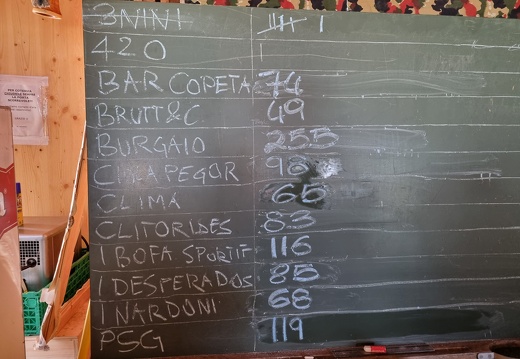 3NINI 𝍸 I
420 I
BAR COPETA 74
BRUTT&C 49
BURGAIO 255
CHIAPEGOR 98
CLIMA 65
CLITORIDES 83
I BOFA SPORTIF 116
I DESPERADOS 85
I NARDONI 68
PSG 119